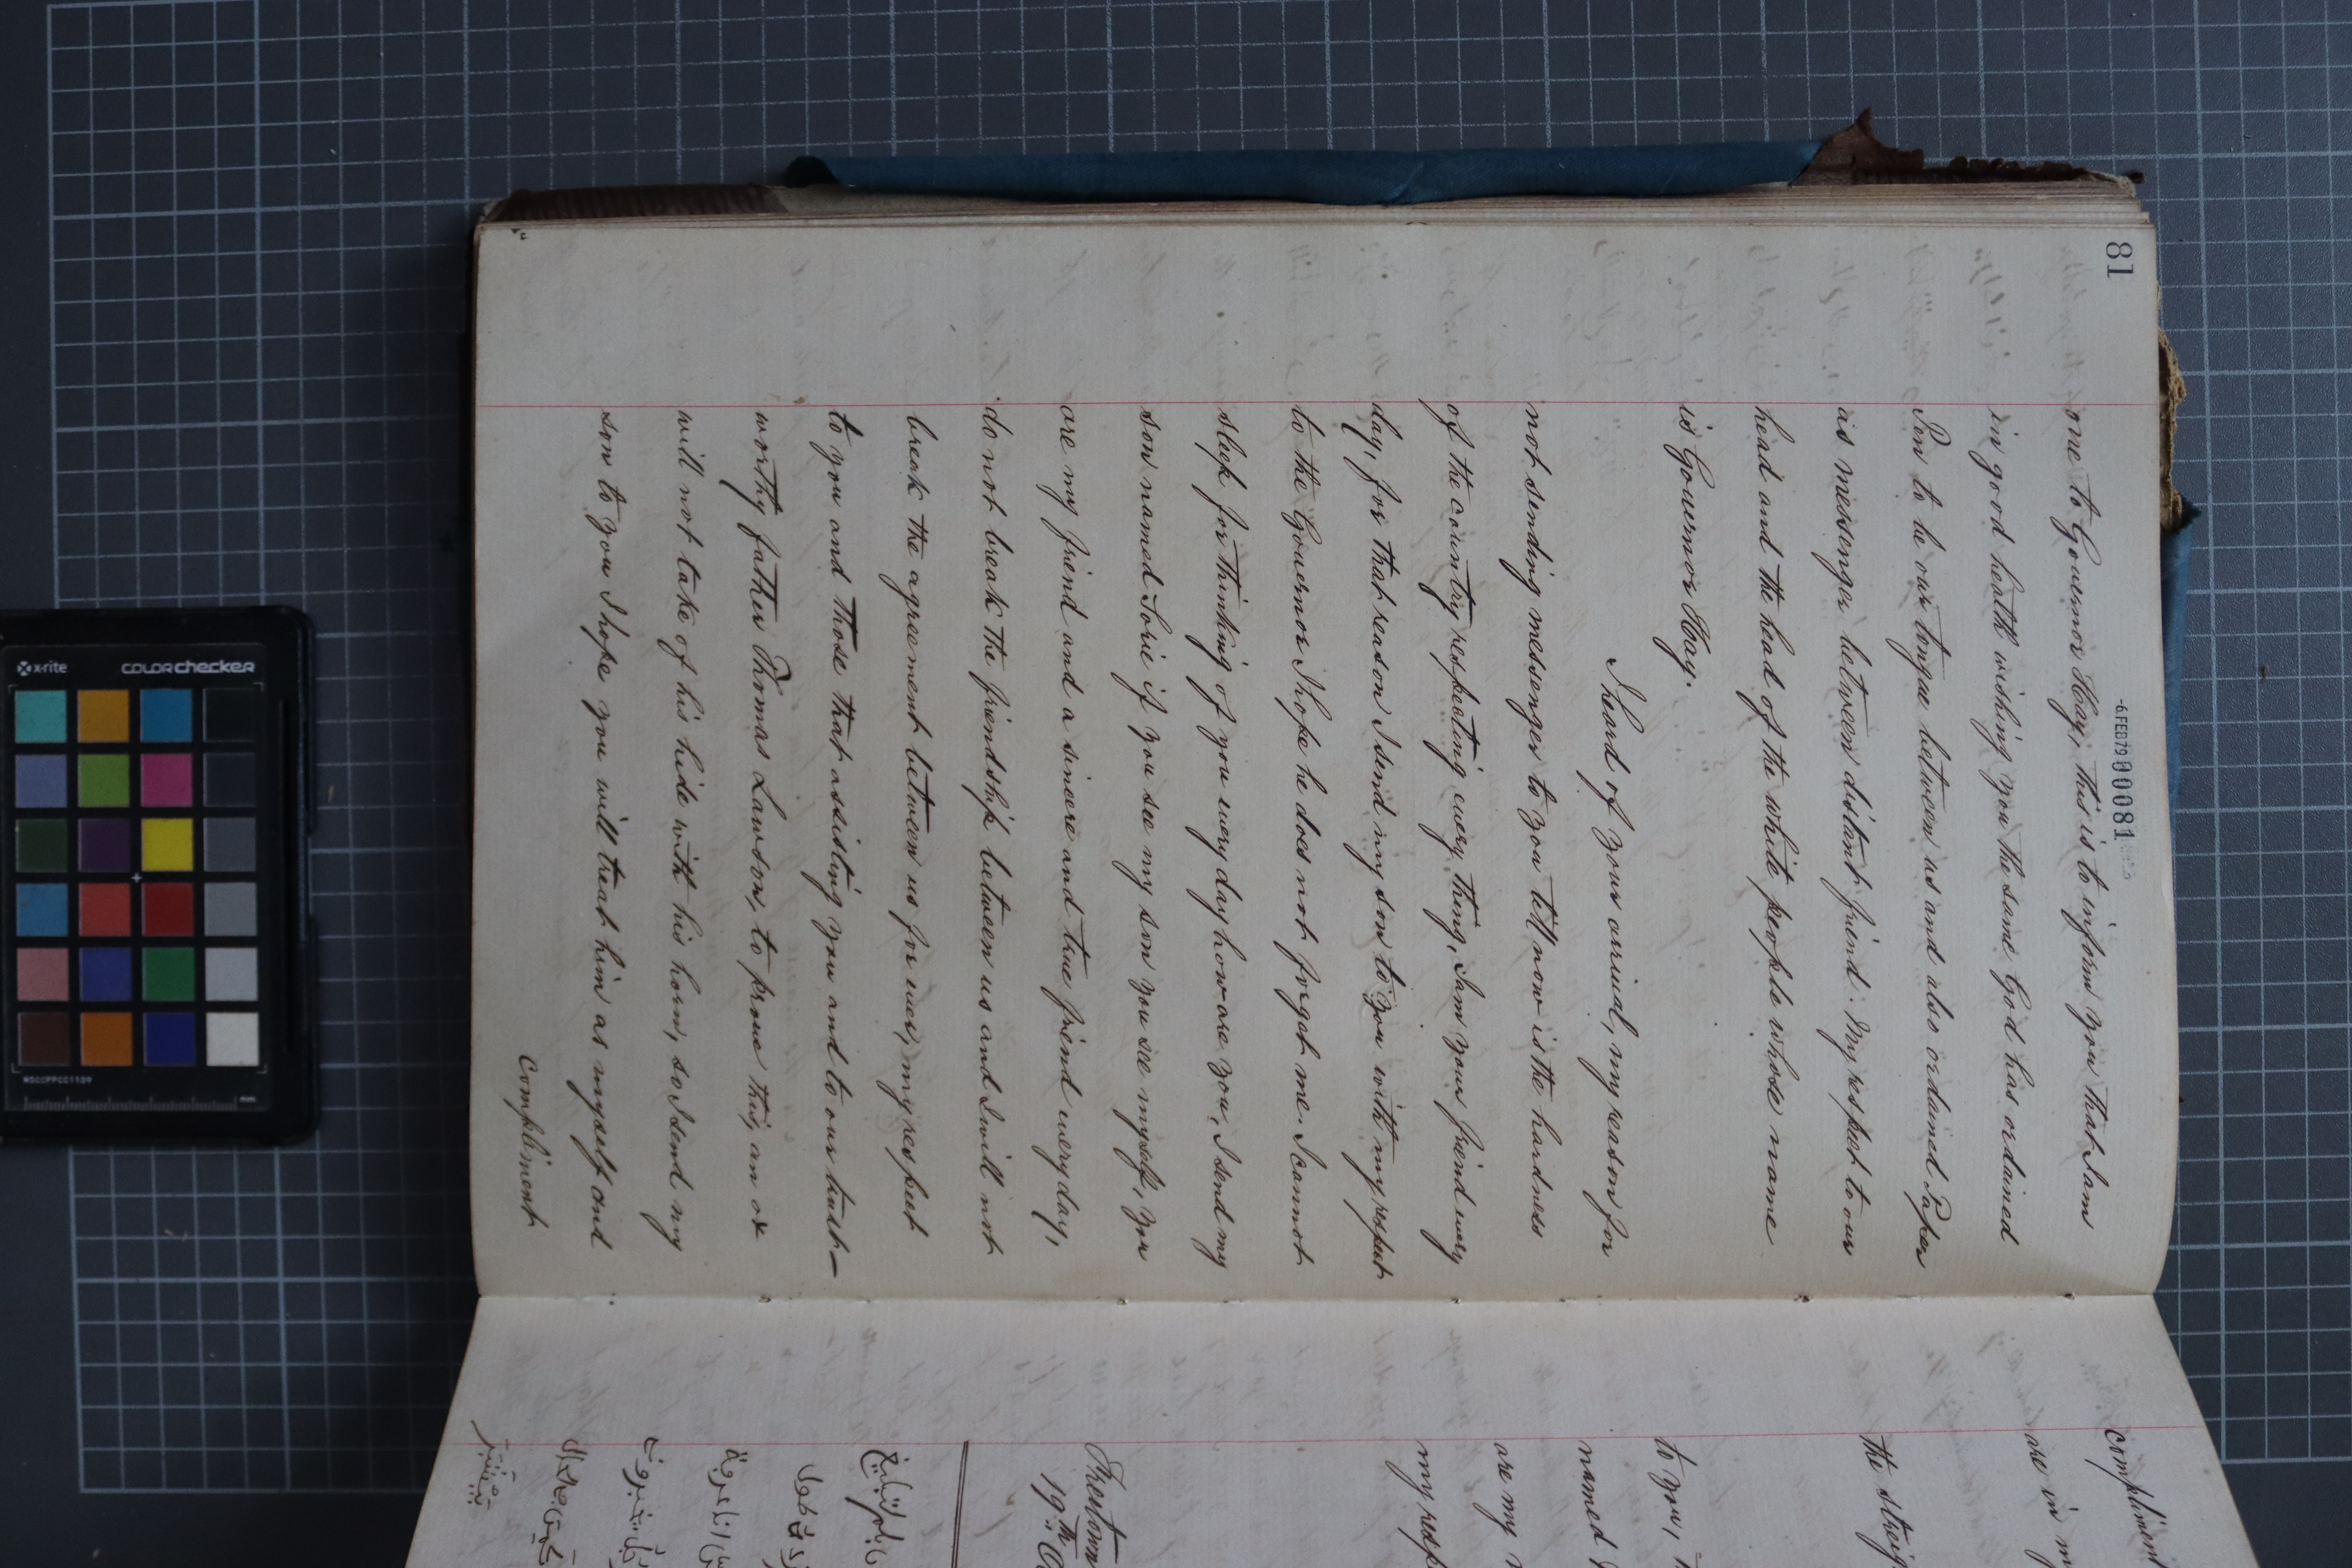 81
-6FEB79 000081
one to Governor Hay, this is to inform you that I am
in good health wishing you the same God has ordained
Pen to be our tongue between us and also ordained Paper
as messenger between distant friend. My respect to our
head and the head of the white people whose name
is Governor Hay.
I heard of your arrival, my reason for
not sending messenger to you till now is the hardness
of the country respecting every thing, I am your friend every
day, for that reason I send my son to you with my respect
to the Governor I hope he does not forget me. I cannot
sleep for thinking of you every day how are you, I send my
son named Sorie if you see my son you see myself, you
are my friend and a sincere and true friend every day,
do not break the friendship between us and I will not
break the agreement between us for ever, my respect
to you and those that assisting you and to our trust-
worthy father Thomas Lawson, to prove this, an ox
will not take of his hide with his horn, so I send my
son to you I hope you will treat him as myself and
compliment
compliment
are in m
the streig
to you,
named
are my
my resp
Freetown
19th
x-rite
colorchecker
MSCCPPCC1109
mm